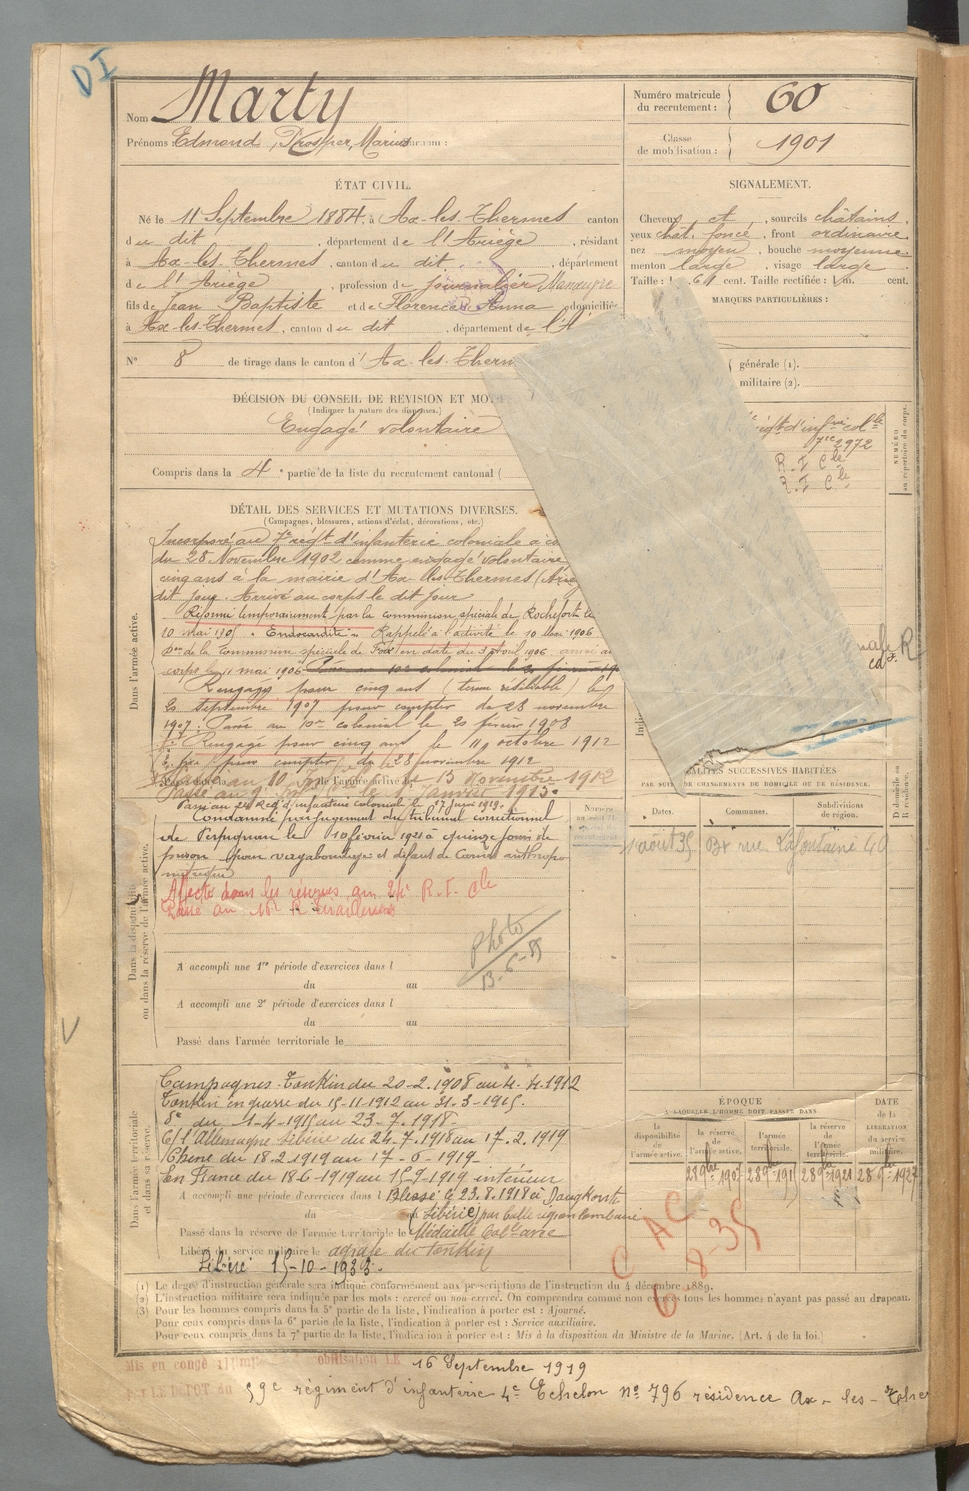 DI
Nom Marty
Prénoms : Edmond, Prosper, Marius
Numéro matricule du recrutement : 60
Classe de mobilisation : 1901
ÉTAT CIVIL.
Né le 11 Septembre 1884, à Ax-les-Thermes canton
du dit, département de l'Ariège, résidant
à Ax-les-Thermes, canton du dit, département
de l'Ariège, profession de journalier Manœuvre
fils de Jean Baptiste et de Florence Anna domiciliés
à Ax-les-Thermes, canton du dit, département de l'A
N° 8 de tirage dans le canton d'Ax-les-Therm
SIGNALEMENT.
Cheveux et, sourcils châtains,
yeux chât. foncé, front ordinaire
nez moyen, bouche moyenne
menton large, visage large
Taille : 1 m. 61 cent. Taille rectifiée : 1 m. cent.
MARQUES PARTICULIÈRES :
générale (1).
militaire (2).
DÉCISION DU CONSEIL DE REVISION ET MO
(Indiquer la nature des dispenses.)
Engagé volontaire
Compris dans la 4e partie de la liste du recrutement cantonal (
d'infie colle
2972
R. I Cle
R. I Cle
NUMÉRO au répertoire du corps.
DÉTAIL DES SERVICES ET MUTATIONS DIVERSES.
(Campagnes, blessures, actions d'éclat, décorations, etc.)
Dans l'armée active.
Incorporé au 7e régt d'infanterie coloniale à c
du 28 Novembre 1902 comme engagé volontaire
cinq ans à la mairie d'Ax-les-Thermes (Arieg
dit jour. Arrivé au corps le dit jour
Réformé temporairement par la commission spéciale de Rochefort le
10 mai 1905 "Endocardite" Rappelé à l'activité le 10 1906
de la Commission spéciale de Foix en date du 3 avril 1906 arrivé au
corps le 11 mai 1906
Rengagé pour cinq ans (terme résiliable) le
21 septembre 1907 pour compter du 28 novembre
1907. Passé au 10e colonial le 20 février 1908
Rengagé pour cinq ans le 11 octobre 1912
pour compter du 28 novembre 1912
Passé au 10 de l'armée active le 15 novembre 1912
Passé au 9 le 1 janvier 1915.
Passé au Reg. d'infanterie coloniale le 17 Juin 1919.
Condamné par jugement du tribunal correctionnel
de Perpignan le 10 février 1921 à quinze jours de
prison pour vagabondage et défaut de Carnet anthropo
métrique
Affecté dans les réserves au 24e R. I. Cle
Passé au 16e R Tirailleurs
Dans la disponibilité ou dans la réserve de l'armée active.
photo
13-6-35
A accompli une 1re période d'exercices dans l
du au
A accompli une 2e période d'exercices dans l
du au
Passé dans l'armée territoriale le
LOCALITÉS SUCCESSIVES HABITÉES
PAR SUITE DE CHANGEMENTS DE DOMICILE OU DE RÉSIDENCE.
Dates. Communes. Subdivisions de région. D domicile ou R résidence.
1 août 35 rue Lafontaine 40
Dans l'armée territoriale et dans sa réserve.
Campagnes. Tonkin du 20-2-1908 au 4-4-1912
Tonkin en guerre du 15-11-1912 au 31-3-1915.
de du 1-4-1915 au 23-7-1918
C/ l'Allemagne Sibérie du 24-7-1918 au 17-2-1919
Chine du 18-2-1919 au 17-6-1919
En France du 18-6-1919 au 15-9-1919 intérieur
A accompli une période d'exercices dans l Blessé le 23.8.1918 à
du (Sibérie) par balle région lombaire
Passé dans la réserve de l'armée territoriale le Médaille Colle avec
Libéré du service militaire le agrafe du Tonkin
Libéré 15-10-1933.
ÉPOQUE
A LAQUELLE L'HOMME DOIT PASSER DANS
DATE de la LIBÉRATION du service militaire.
la disponibilité de l'armée active. la réserve de l'armée active. l'armée territoriale. la réserve de l'armée territoriale.
28 9bre 1907 28 9bre 191 28 9bre 1921 28 9bre 1927
C A C
6-8-35
(1) Le degré d'instruction générale sera indiqué conformément aux prescriptions de l'instruction du 4 décembre 1889.
(2) L'instruction militaire sera indiquée par les mots : exercé ou non exercé. On comprendra comme non exercés tous les hommes n'ayant pas passé au drapeau.
(3) Pour les hommes compris dans la 5e partie de la liste, l'indication à porter est : Ajourné.
Pour ceux compris dans la 6e partie de la liste, l'indication à porter est : Service auxiliaire.
Pour ceux compris dans la 7e partie de la liste, l'indication à porter est : Mis à la disposition du Ministre de la Marine. (Art. 4 de la loi.)
Mis en congé obilisation LE 16 Septembre 1919
Par LE DEPOT du 59e régiment d'infanterie 4e Echelon n° 796 résidence Ax-les-Ther